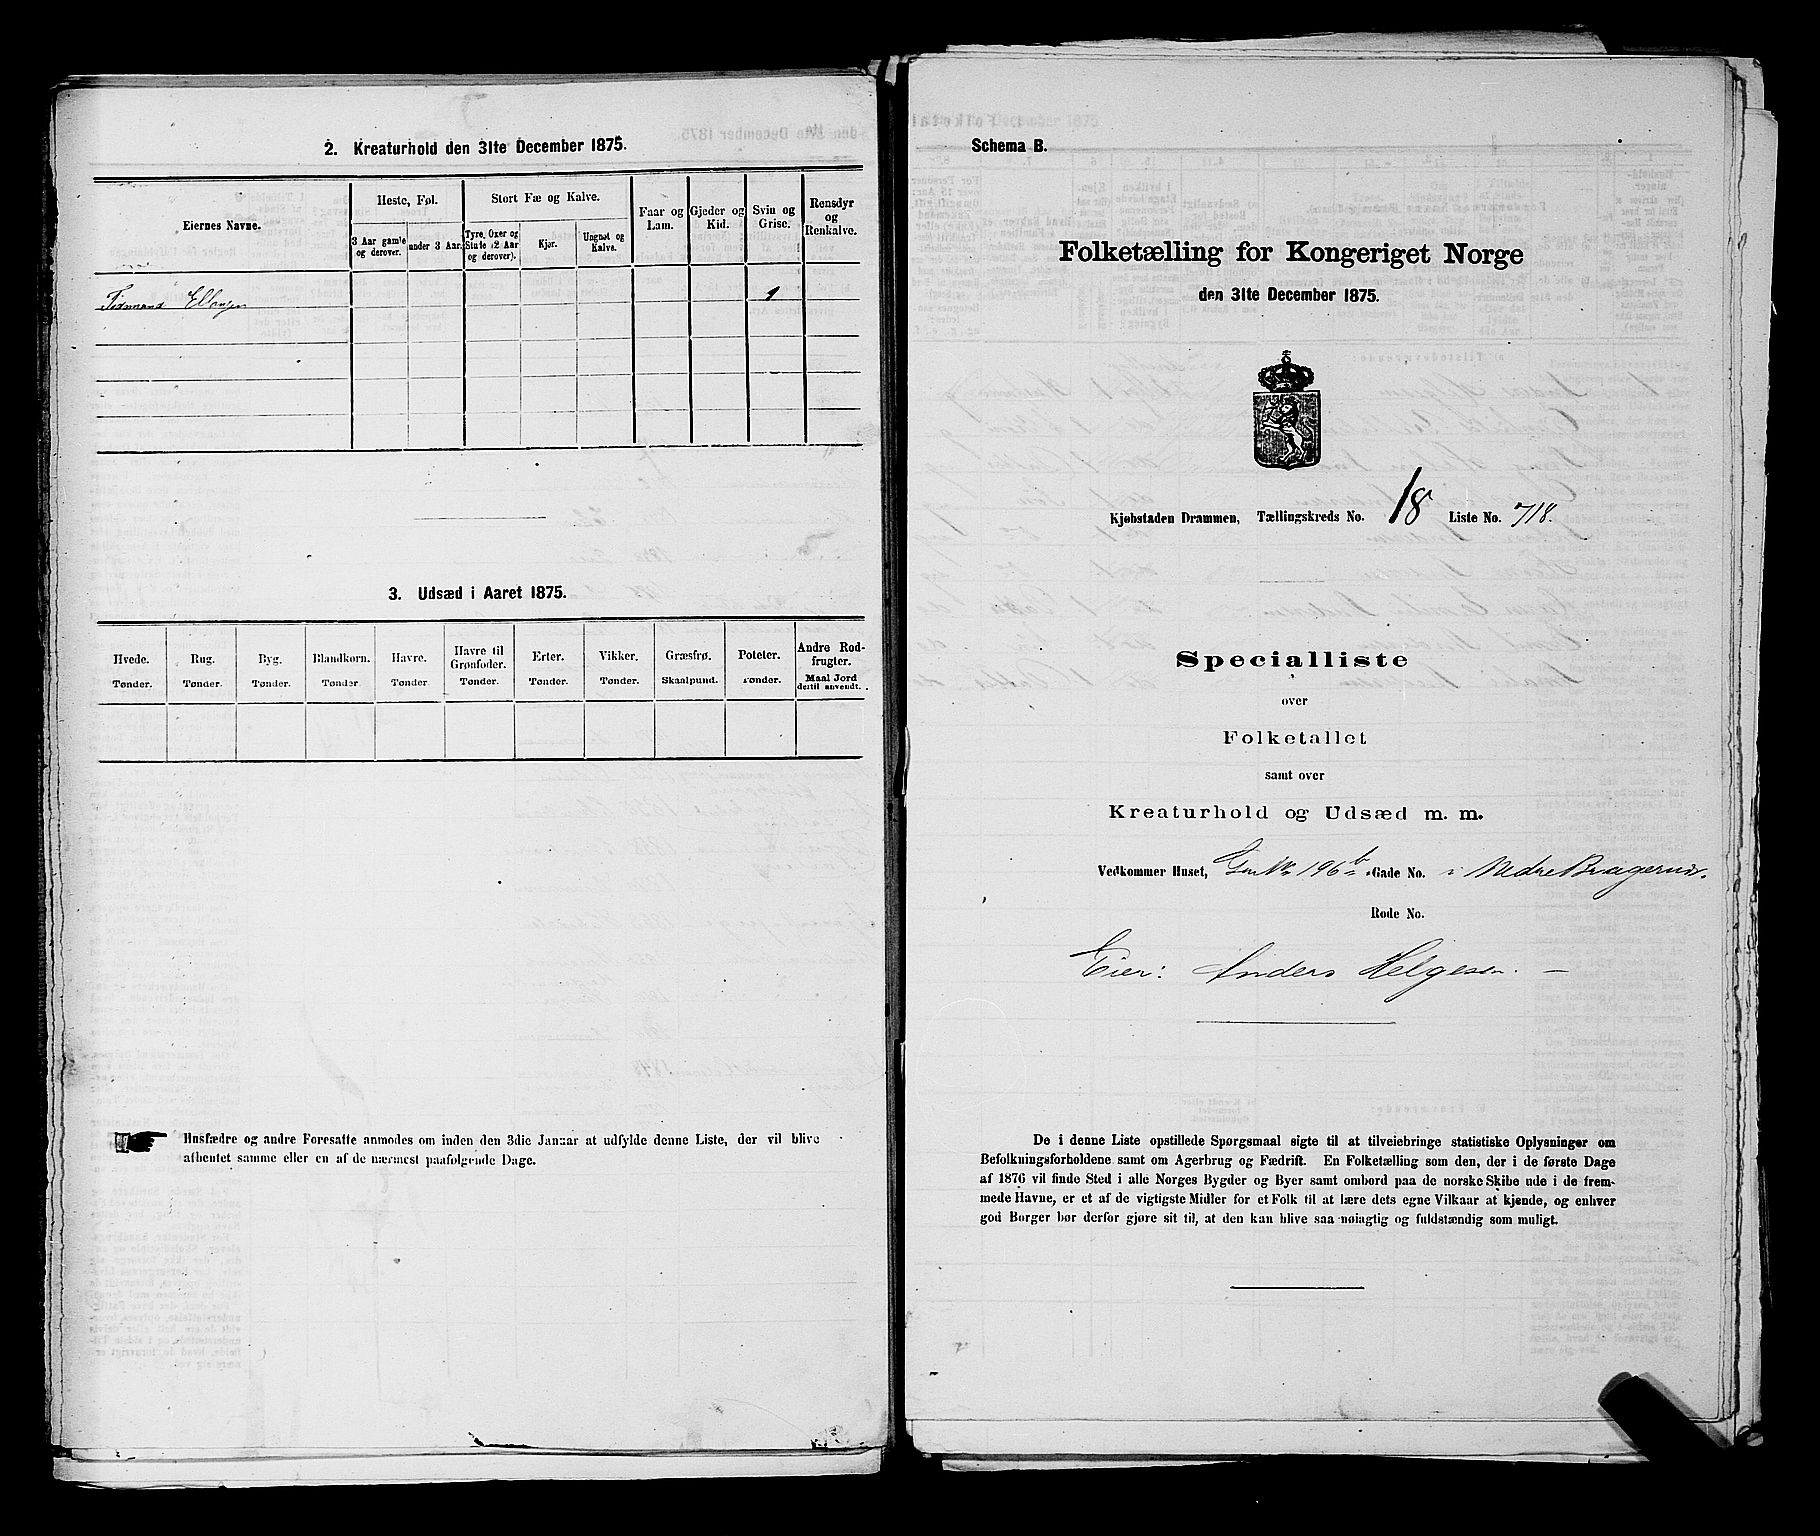 2. Kreaturhold den 31te December 1875.
Eiernes Navne.
Heste, Føl.
3 Aar gamle og derover.
under 3 Aar.
Stort Fæ og Kalve.
Tyre, Oxer og Stude (2 Aar og derover).
Kjør.
Ungnøt og Kalve.
Faar og Lam.
Gjeder og Kid.
Sviu og Grise.
Rensdyr og Renkalve.
1
3. Udsæd i Aaret 1875.
Hvede. Tønder.
Rug. Tønder.
Byg. Tønder.
Blandkorn. Tønder.
Havre. Tønder.
Havre til Grønfoder. Tønder.
Erter. Tønder.
Vikker. Tønder.
Græsfrø. Skaalpund.
Poteter. Tønder.
Andre Rodfrugter. Maal Jord dertil anvendt.
Husfædre og andre Foresatte anmodes om inden den 3die Januar at udfylde denne Liste, der vil blive
afhentet samme eller en af de nærmest paafølgende Dage.
Schema B.
Folketælling for Kongeriget Norge
den 31te December 1875.
Kjøbstaden Drammen, Tællingskreds No. 18 Liste No. 718.
Specialliste
over
Folketallet
samt over
Kreaturhold og Udsæd m. m.
Vedkommer Huset, 196 b Gade No. i Nedre Bragernæs.
Rode No.
Eier: Anders Helgesen. —
De i denne Liste opstillede Spørgsmaal sigte til at tilveiebringe statistiske Oplysninger om
Befolkningsforholdene samt om Agerbrug og Fædrift. En Folketælling som den, der i de første Dage
af 1876 vil finde Sted i alle Norges Bygder og Byer samt ombord paa de norske Skibe ude i de frem-
mede Havne, er et af de vigtigste Midler for et Folk til at lære dets egne Vilkaar at kjende, og enhver
god Borger bør derfor gjøre sit til, at den kan blive saa nøiagtig og fuldstændig som muligt.